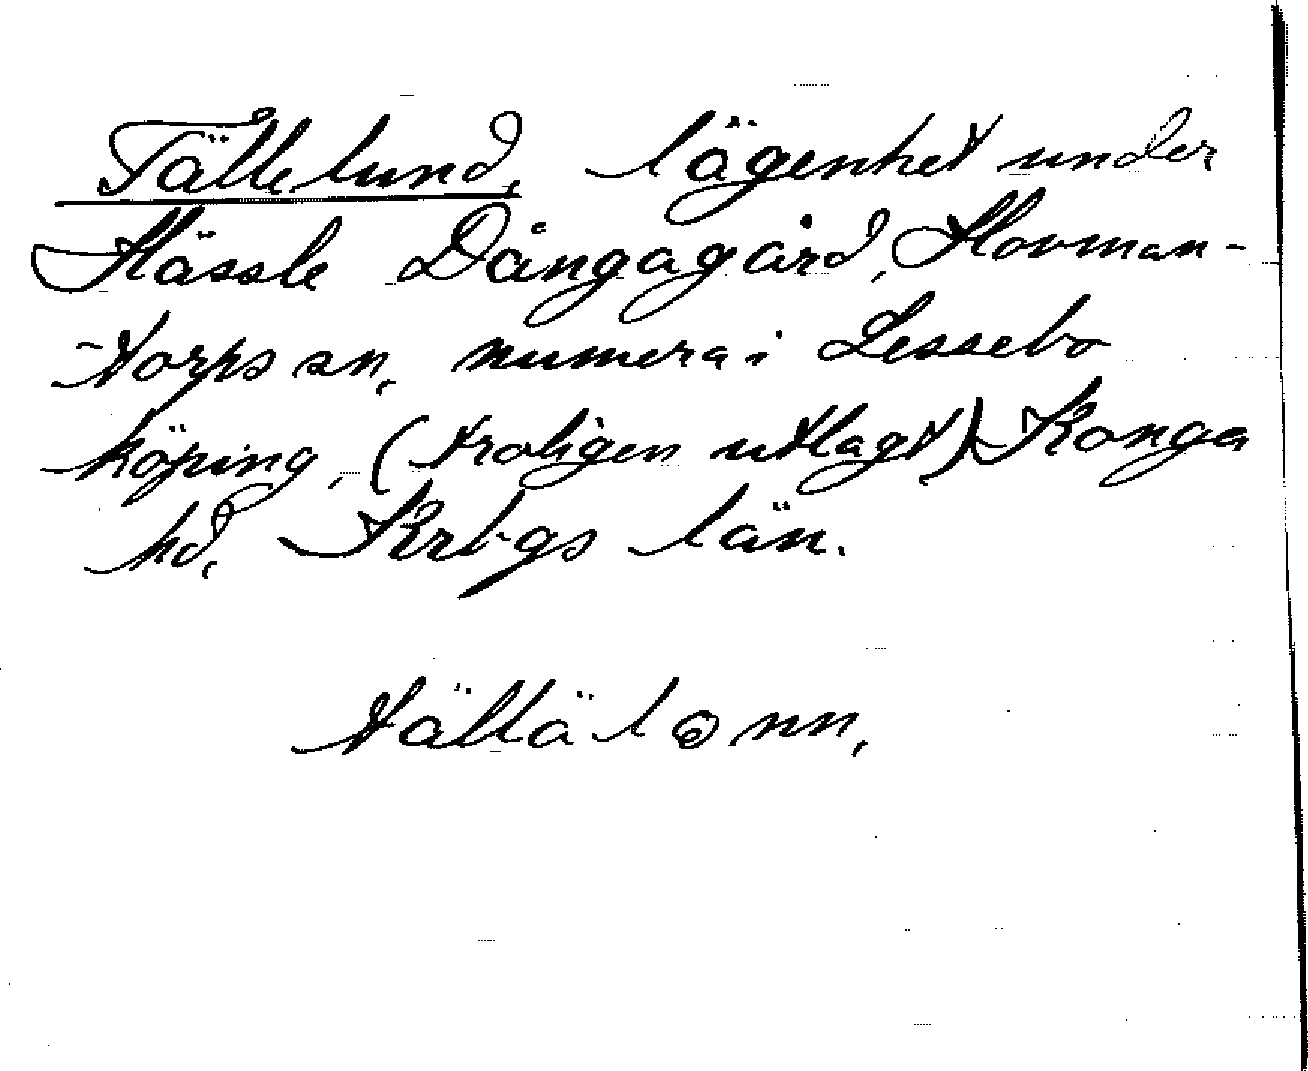 Tällelund, lägenhet under
Hässle Dångagård, Hovman-
torps sn, numera i Lessebo
köping, (troligen utlagt) Konga
hd, Krbgs län.
tällälonn,